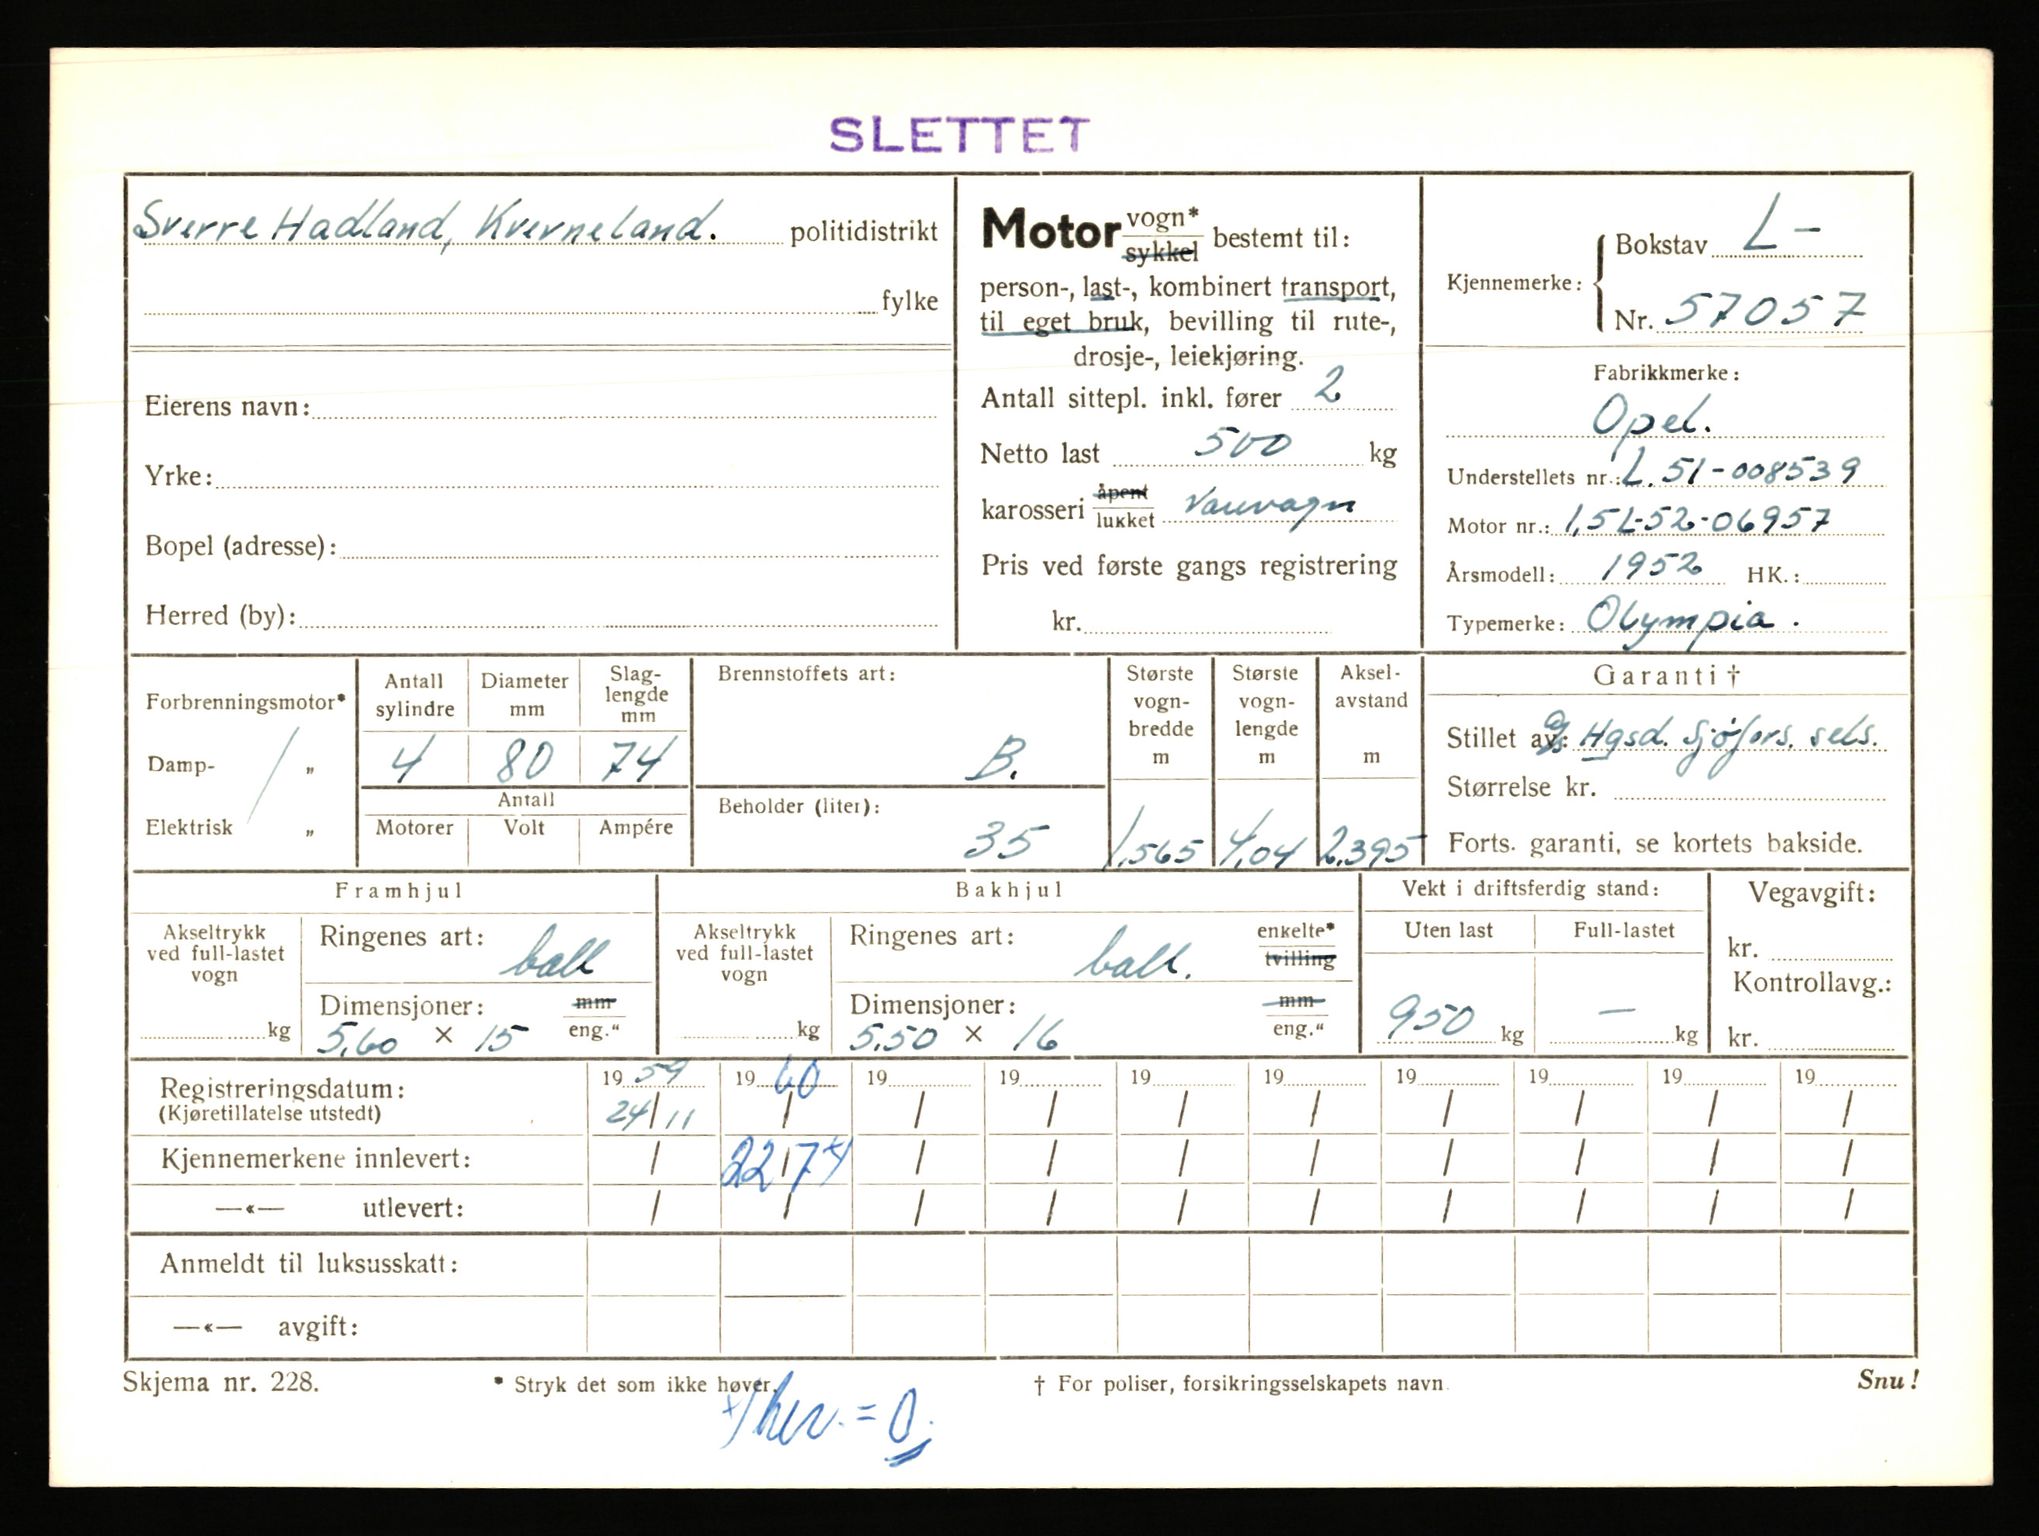 SLETTET
Sverre Hadland, Kverneland. politidistrikt
fylke
Eierens navn:
Yrke:
Bopel (adresse):
Herred (by):
Motor vogn* sykkel bestemt til:
person-, last-, kombinert transport,
til eget bruk, bevilling til rute-,
drosje-, leiekjøring.
Antall sittepl. inkl. fører 2
Netto last 500 kg
karosseri åpent lukket Varevogn
Pris ved første gangs registrering
kr.
Kjennemerke: Bokstav L-
Nr. 57057
Fabrikkmerke:
Opel.
Understellets nr.: L.51-008539
Motor nr.: 1,5L-52-06957
Årsmodell: 1952 HK.:
Typemerke: Olympia.
Forbrenningsmotor*
Damp- „
Elektrisk „
Antall sylindre 4
Diameter mm 80
Slag-lengde mm 74
Antall
Motorer Volt Ampére
Brennstoffets art: B.
Beholder (liter): 35
Største vogn-bredde m 1,565
Største vogn-lengde m 4,04
Aksel-avstand m 2,395
Garanti †
Stillet av: Hgsd. Sjøfors. sels.
Størrelse kr.
Forts. garanti, se kortets bakside.
Framhjul
Akseltrykk ved full-lastet vogn kg
Ringenes art: ball
Dimensjoner: mm eng."
5,60 × 15
Bakhjul
Akseltrykk ved full-lastet vogn kg
Ringenes art: ball. enkelte* tvilling
Dimensjoner: mm eng."
5,50 × 16
Vekt i driftsferdig stand:
Uten last Full-lastet
950 kg — kg
Vegavgift:
kr.
Kontrollavg.:
kr.
Registreringsdatum: 1959 1960 19 19 19 19 19 19 19 19
(Kjøretillatelse utstedt) 24/11 / / / / / / / / /
Kjennemerkene innlevert: / 22/7 x) / / / / / / / /
—«— utlevert: / / / / / / / / / /
Anmeldt til luksusskatt:
—«— avgift:
Skjema nr. 228. * Stryk det som ikke høver. † For poliser, forsikringsselskapets navn. Snu!
= 0.